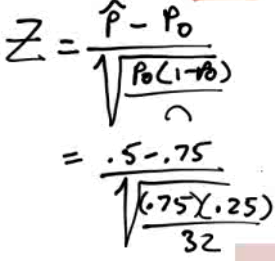 Z = (p̂ - p₀) / √(p₀(1-p₀) / n)
= (.5 - .75) / √((.75)(.25) / 32)